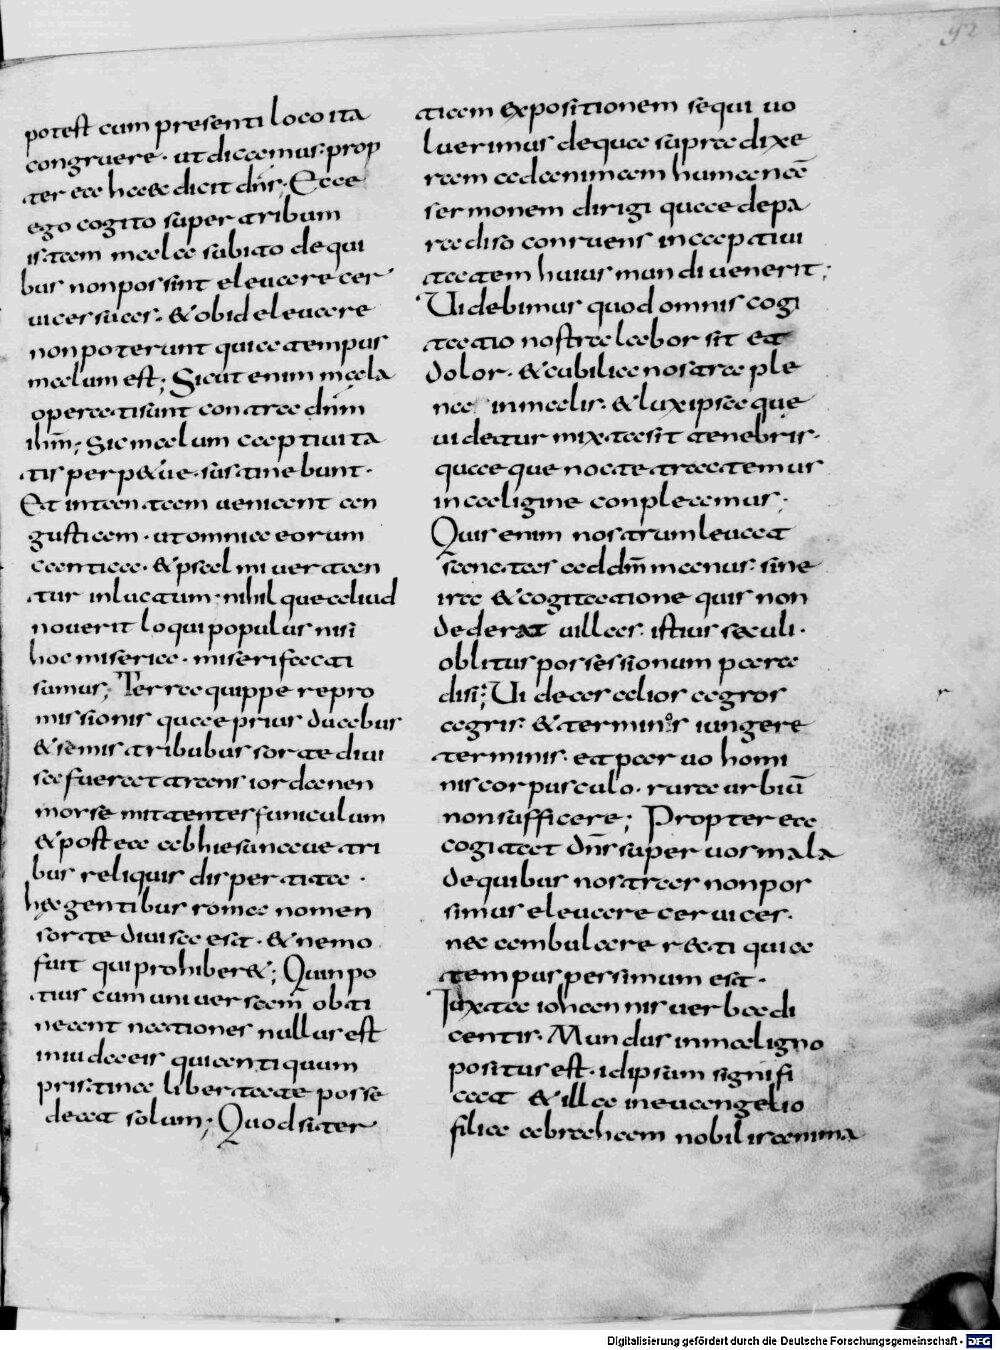 92
potest cum presenti loco ita
congruere · ut dicamus · prop
ter ea haec dicit dns; Ecce
ego cogito super tribum
istam mala subito de qui
bus non possint eleuare cer
uices suas · & ob id eleuare
non poterunt quia tempus
malum est; Sicut enim mala
opera tisunt contra dnm
ihm; Sic malum captiuita
tis perp&ue · sustinebunt ·
Et in tantam uenient an
gustiam · ut omnia eorum
cantica · & psalmi uertan
tur in luctum · nihilque aliud
nouerit loqui populus nisi
hoc miseria · miseri facti
sumus; Terra quippe repro
missionis quae prius duabus
& semis tribubus sorte diui
sa fuerat trans iordanen
morse mittentes funiculum
& postea ab hiesu naue tri
bus reliquis dispertita ·
hęc gentibus romae nomen
sorte diuisa est · & nemo
fuit qui prohiber&; Quin po
tius cum uniuersam obti
neant nationes nullus est
in iudaeis qui antiquum
pristinae libertate posse
deat solum; Quod si ter
tiam expositionem sequi uo
luerimus de qua supra dixe
ram ad animam humanā
sermonem dirigi quae de pa
radiso conruens in captiui
tatem huius mundi uenerit;
Uidebimus quod omnis cogi
tatio nostra labor sit et
dolor · & cubilia nostra ple
na in malis · & lux ipsa que
uidetur mixta sit tenebris ·
quaeque nocte tractemus
in caligine conpleamus;
Quis enim nostrum leuat
sanctas ad dm̄ manus · sine
ira & cogitatione quis non
dederat uillas · istius saeculi ·
oblitus possessionum para
disi; Uideas alios agros
agris · & terminos iungere
terminis · et paruo homi
nis corpusculo · rura urbiū
non sufficere; Propterea
cogitat dns super uos mala
de quibus nostras non pos
simus eleuare ceruices ·
nec ambulare recti quia
tempus pessimum est ·
Iuxta iohannis uerba di
centis · Mundus in maligno
positus est · id ipsum signifi
cat & illa in euangelio
filia abraham nobilis anima